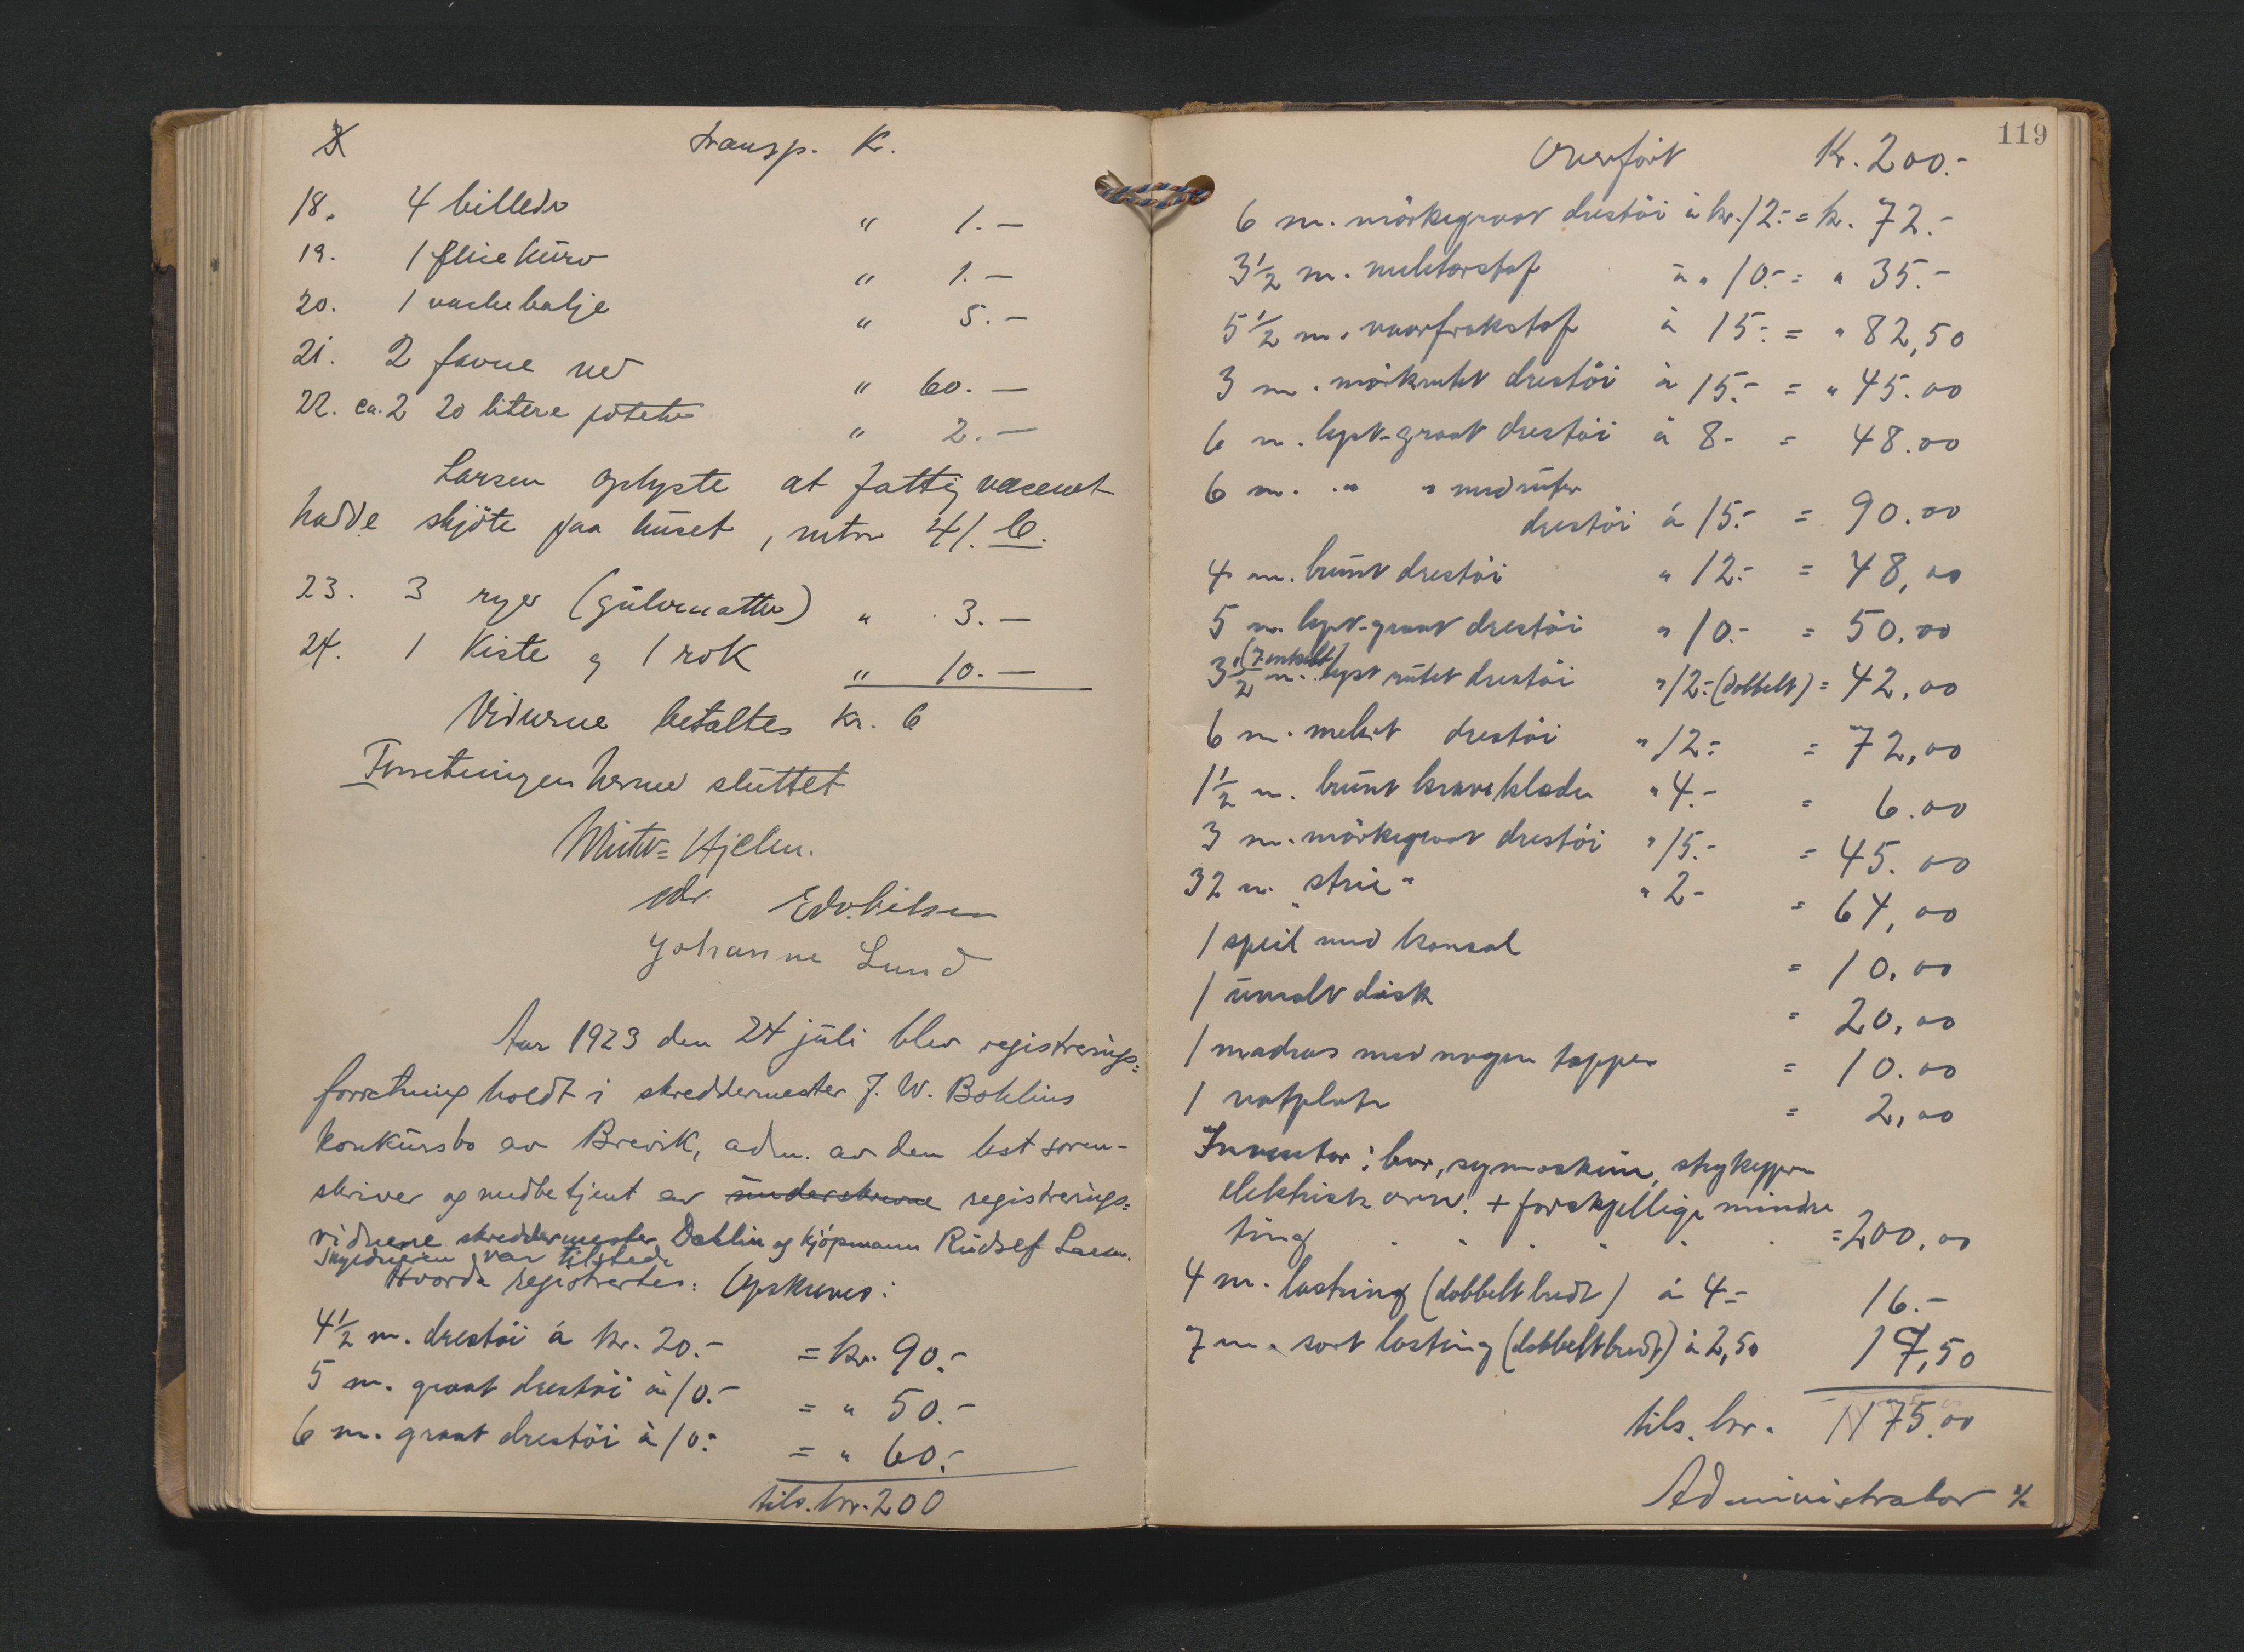 transp. Kr.
18. 4 billeder " 1.—
19. 1 fliskurv " 1.—
20. 1 vaskebalje " 5.—
21. 2 favne ved " 60.—
22. ca. 2 20 litere poteter " 2.—
Larsen oplyste at fattigvæsenet
hadde skjöte paa huset, mtr 41. b.
23. 3 ryer (gulvmatter) " 3.—
24. 1 Kiste og 1 rok " 10.—
Vidnerne betaltes kr. 6
Forretningen hermed sluttet
Winter-Hjelm.
Edv. Nilsen
Johanne Lund
Aar 1923 den 24 juli blev registrerings=
forretning holdt i skreddermester J. W. Bohlins
konkursbo av Brevik, adm. av den best. soren-
skriver og medbetjent av underskrevne registrerings=
vidnene skreddermester Dahlin og kjöpmann Rudolf Larsen.
Skyldneren var tilstede
Hvorda registrertes: Opskrives:
4½ m. drestöi á kr. 20.- = kr. 90.-
5 m. graat drestöi á 10.- = " 50.-
6 m. graat drestöi á 10.- = " 60.-
tils. kr. 200
119
Overfört Kr. 200.-
6 m. mörkegraat drestöi á kr. 12.- = kr. 72.-
3½ m. á " 10.- = " 35.-
5½ m. vaarfrakstof á 15.- = " 82,50
3 m. mörkrutet drestöi á 15.- = " 45.00
6 m. lyst-graat drestöi á 8- = 48.00
6 m. " " med ruter
drestöi á 15.- = 90.00
4 m. brunt drestöi " 12.- = 48,00
5 m. lyst-graat drestöi " 10.- = 50.00
(7 enkelt)
3½ m. lyst rutet drestöi " 12.- (dobbelt) = 42,00
6 m. melert drestöi " 12.- = 72,00
1½ m. brunt kraveklæde " 4.- = 6.00
3 m. mörkegraat drestöi " 15.- = 45.00
32 m. "strie" " 2- = 64,00
1 speil med konsol = 10.00
1 umalt disk = 20,00
1 madras med nogen tepper = 10.00
1 = 2,00
Inventar: bor, symaskine, strykejern
elektrisk ovn. + forskjellige mindre
ting . . . . . . = 200.00
4 m. lastring (dobbelt bredt) á 4.- 16.-
7 m. sort lasting (dobbelt bredt) á 2,50 17,50
tils. kr. 1175.00
Administrator %